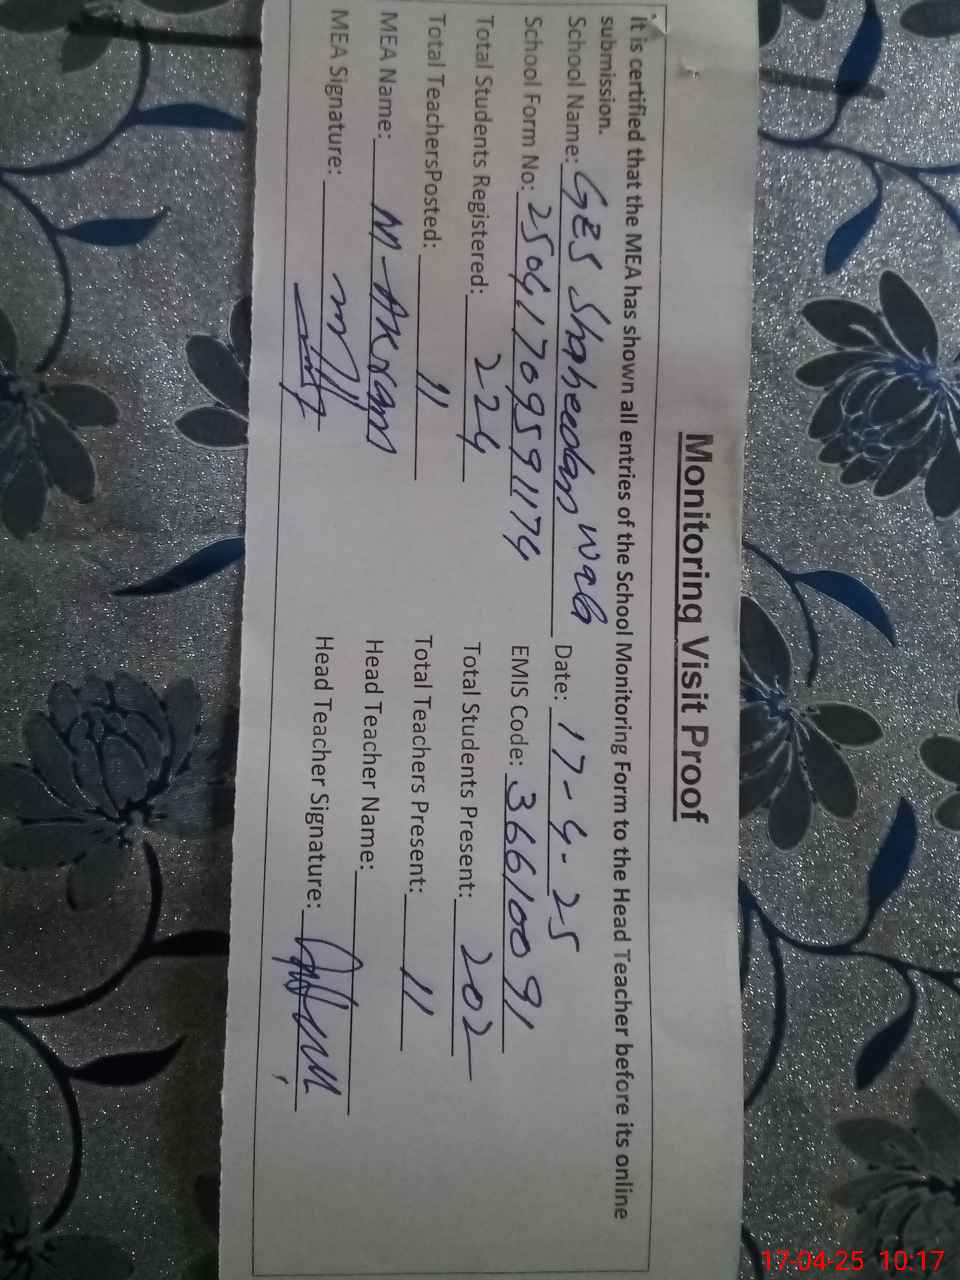 Monitoring Visit Proof
It is certified that the MEA has shown all entries of the School Monitoring Form to the Head Teacher before its online
submission.
School Name: GES Shaheedan Wala Date: 17-4-25
School Form No: 25041709591174 EMIS Code: 36610091
Total Students Registered: 224 Total Students Present: 202
Total TeachersPosted: 11 Total Teachers Present: 11
MEA Name: M-Akram Head Teacher Name:
MEA Signature: Head Teacher Signature:
17-04-25 10:17